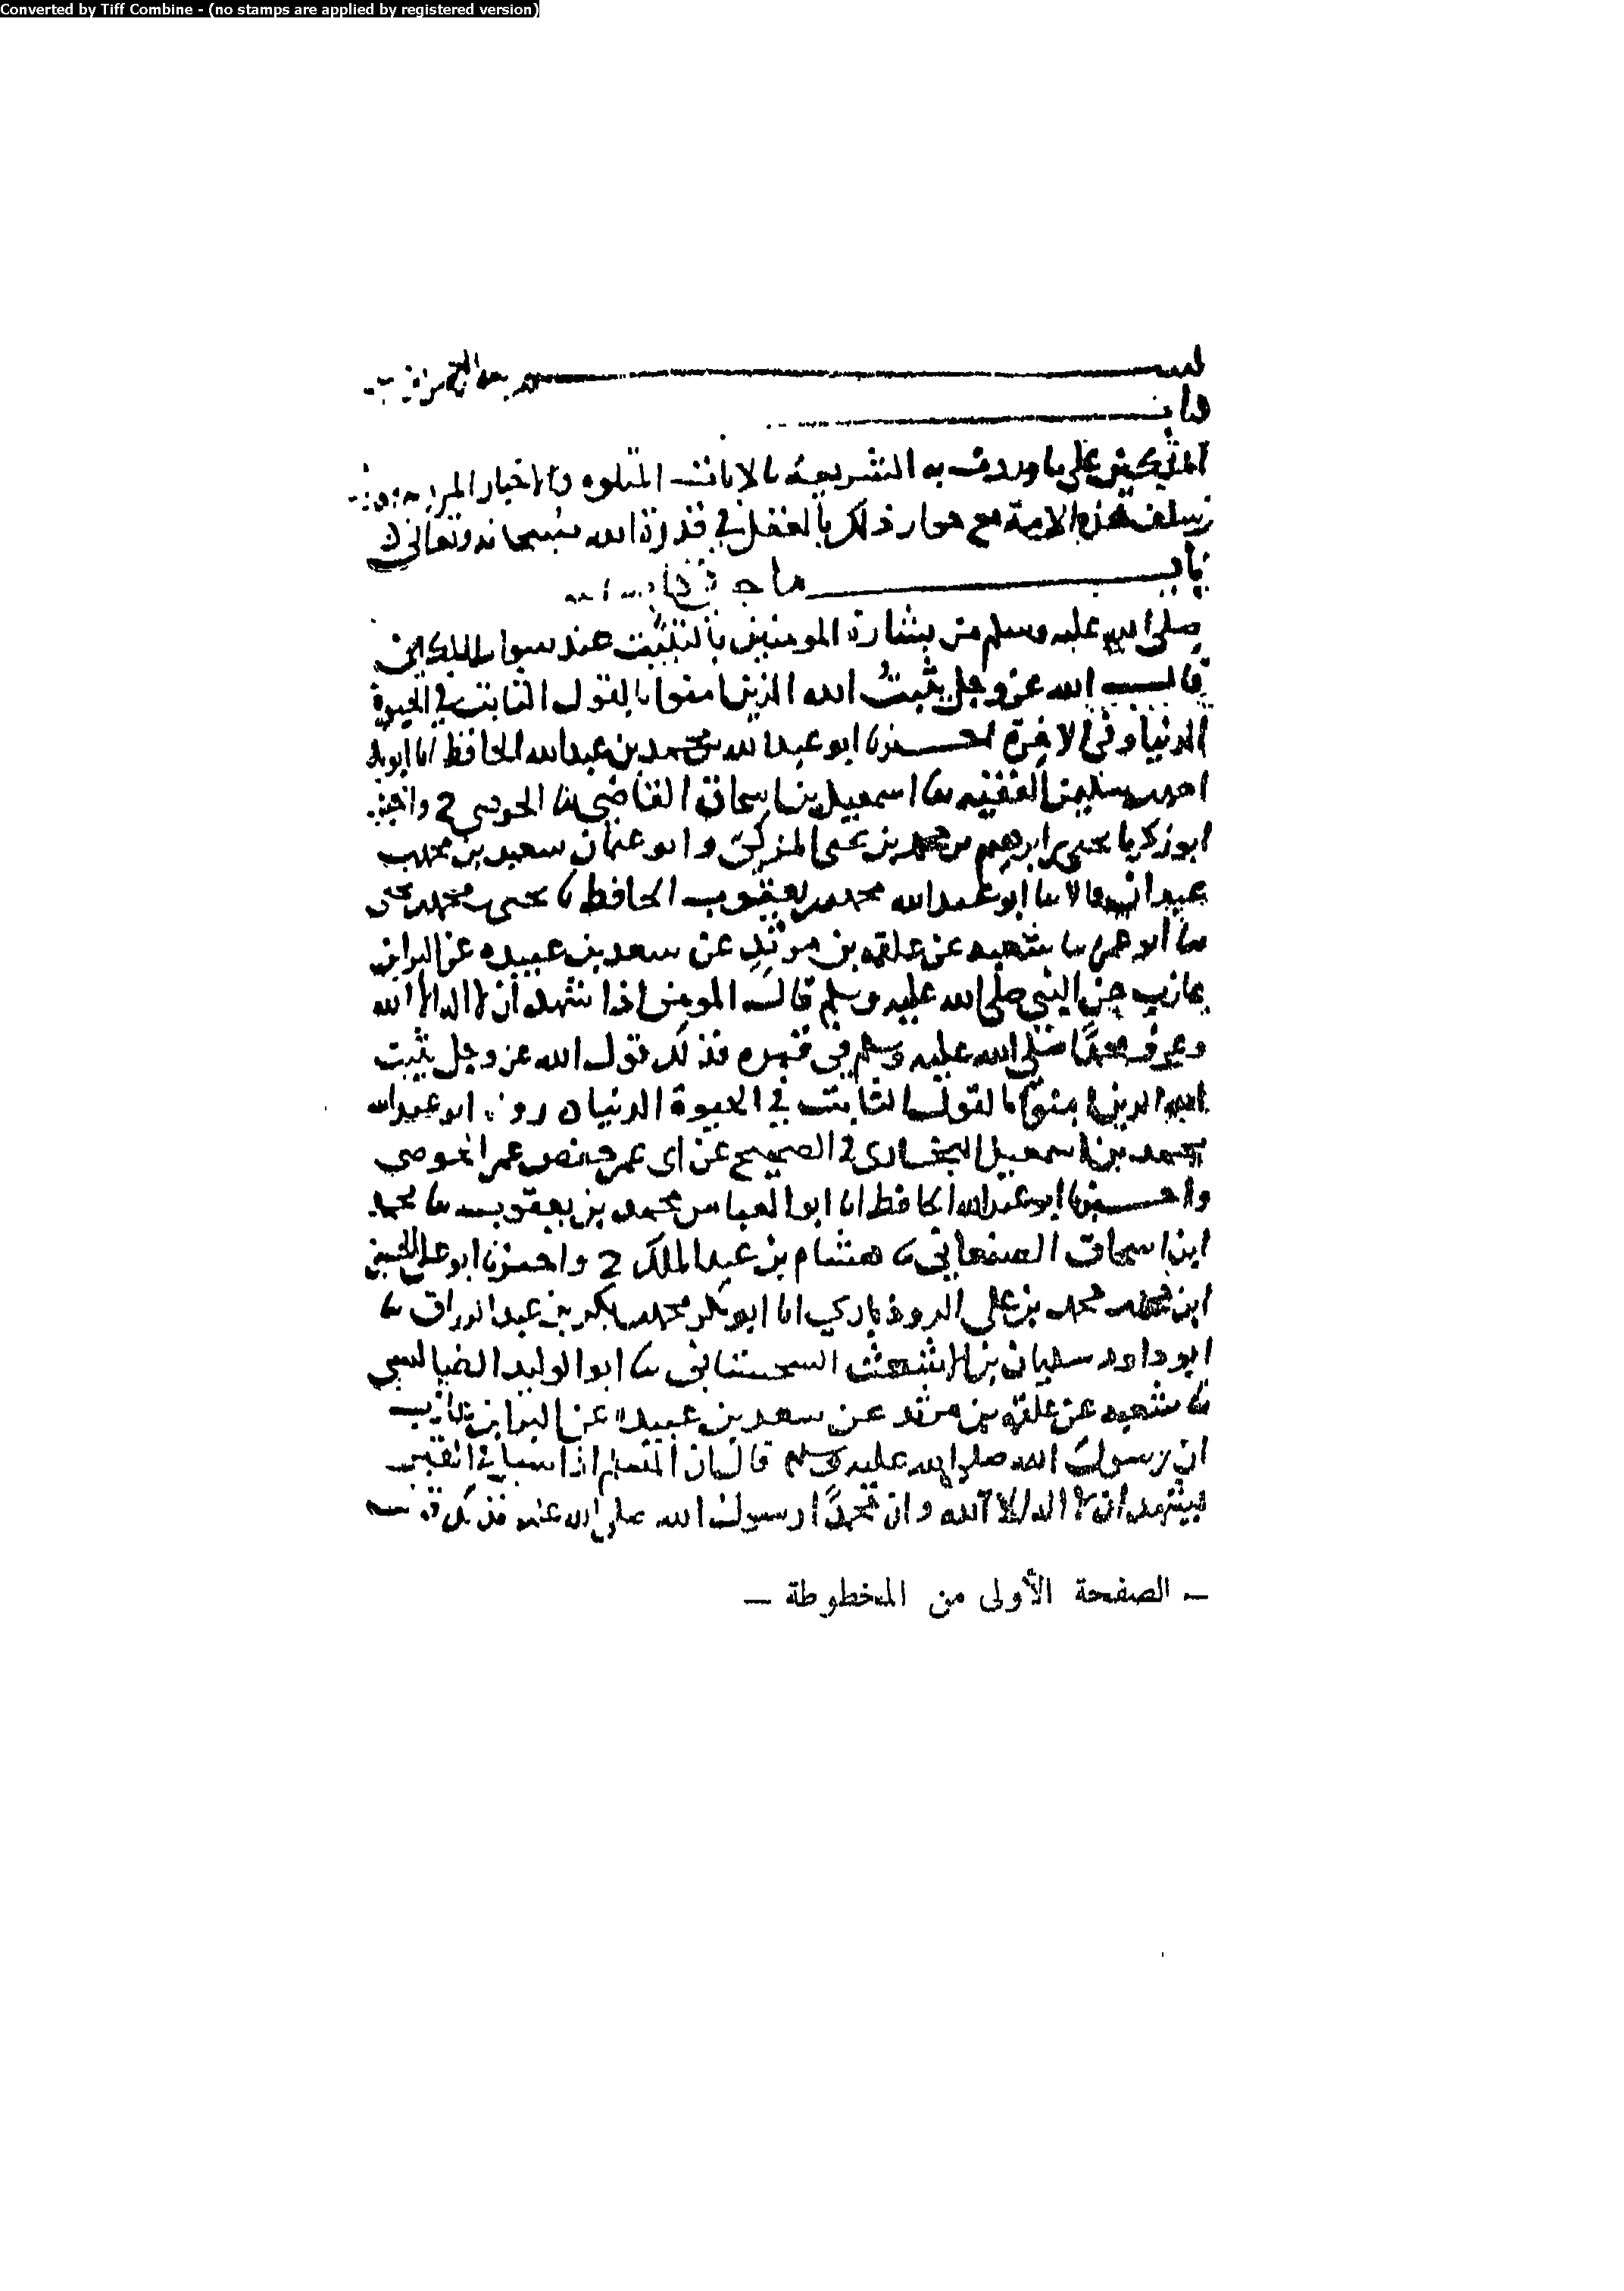 Converted by Tiff Combine - (no stamps are applied by registered version)
بسم الله الرحمن
باب
الملكين على ما وردت به الشريعة بالايات المتلوه والاخبار المرويه
سلف هذه الامة مع جواز ذلك بالعقل في قدرة الله سبحانه وتعالى
باب ما جا
صلى الله عليه وسلم من بشارة المومنين بالتثبيت عند سوال الملكين
قال الله عز وجل يثبت الله الذين امنوا بالقول الثابت في الحيوة
الدنيا وفي الاخرة اخبرنا ابو عبد الله محمد بن عبد الله الحافظ انا ابو بكر
احمد بن سليمن الفقيه نا اسمعيل بن اسحاق القاضي نا الحوضي ح واخبرنا
ابو زكريا يحيى بن ابرهيم بن محمد بن يحيى المزكي وابو عثمان سعيد بن محمد بن
عبدان قالا نا ابو عبد الله محمد بن يعقوب الحافظ نا يحيى بن محمد بن يحيى
نا ابو عمر نا شعبه عن علقمه بن مرثد عن سعد بن عبيده عن البرا بن
عازب عن النبي صلى الله عليه وسلم قال المومن اذا شهد ان لا اله الا الله
وعرف محمدا صلى الله عليه وسلم في قبره فذلك قول الله عز وجل يثبت
الله الذين امنوا بالقول الثابت في الحيوة الدنيا رواه ابو عبد الله
محمد بن اسمعيل البخاري في الصحيح عن ابي عمر حفص بن عمر الحوضي
واخبرنا ابو عبد الله الحافظ انا ابو العباس محمد بن يعقوب نا محمد
ابن اسحاق الصنعاني نا هشام بن عبد الملك ح واخبرنا ابو علي الحسين
ابن محمد بن محمد بن علي الروذباري انا ابو بكر محمد بن بكر بن عبد الرزاق نا
ابو داود سليمان بن الاشعث السجستاني نا ابو الوليد الطيالسي
نا شعبه عن علقمه بن مرثد عن سعد بن عبيده عن البرا بن عازب
ان رسول الله صلى الله عليه وسلم قال ان المسلم اذا سئل في القبر
فيشهد ان لا اله الا الله وان محمدا رسول الله صلى الله عليه فذلك قوله
– الصفحة الأولى من المخطوطة –